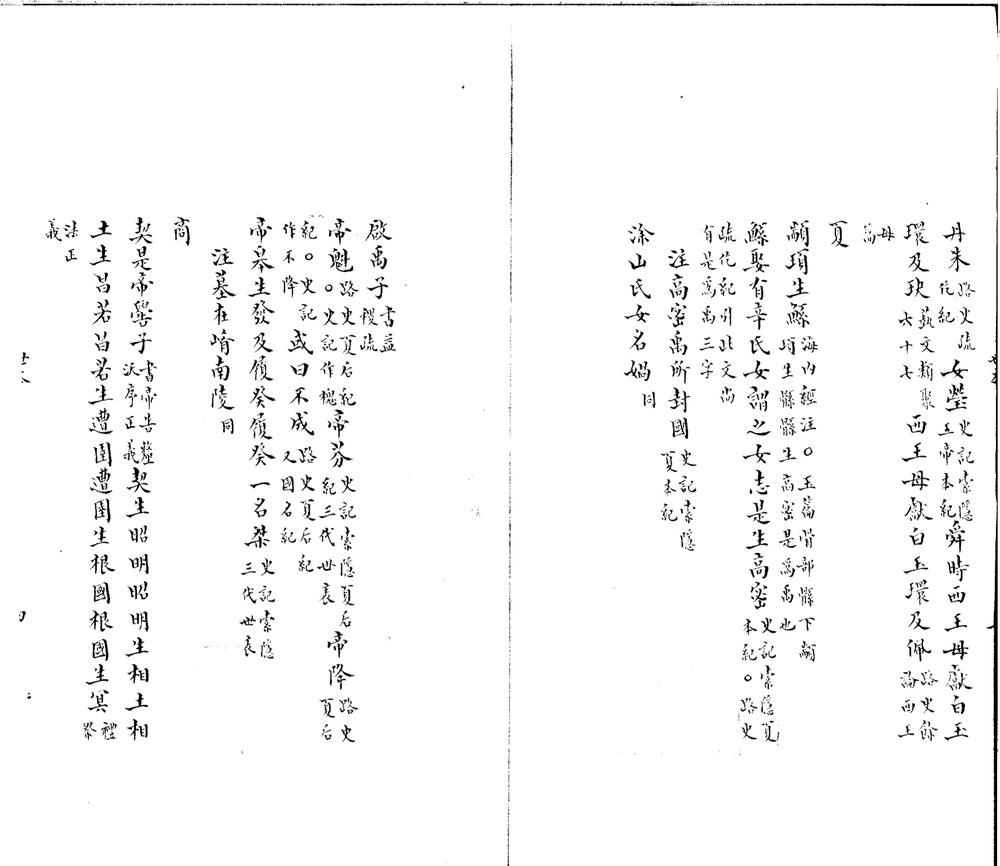 丹朱路史疏仡紀女瑩史記索隱五帝本紀舜時西王母獻白玉
環及玦藝文類聚六十七西王母獻白玉環及佩路史餘論西王
母篇
夏
顓頊生鯀海內經注○玉篇骨部骽下顓頊生骽骽生高密是為禹也
鯀娶有辛氏女謂之女志是生高密史記索隱夏本紀○路史
疏仡紀引此文尚有是為禹三字
注高密禹所封國史記索隱夏本紀
涂山氏女名媧同
啟禹子書益稷疏
帝魁路史夏后紀○史記作槐帝芬史記索隱夏后紀三代世表帝降路史夏后
紀○史記作不降或曰不成路史夏后紀又國名紀
帝皋生發及履癸履癸一名桀史記索隱三代世表
注墓在崤南陵同
商
契是帝嚳子書帝告釐沃序正義契生昭明昭明生相土相
土生昌若昌若生遭圉遭圉生根國根國生冥禮祭
法正義